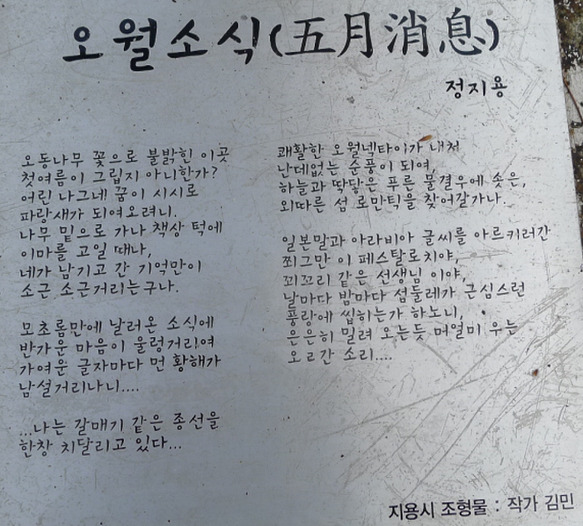 오월소식(五月消息)
정지용
오동나무 꽃으로 불밝힌 이곳
첫여름이 그립지 아니한가?
어린 나그네 꿈이 시시로
파랑새가 되여오려니.
나무 밑으로 가나 책상 턱에
이마를 고일 때나,
네가 남기고 간 기억만이
소근 소근거리는구나.
모초롬만에 날러온 소식에
반가운 마음이 울렁거리여
가여운 글자마다 먼 황해가
남설거리나니....
...나는 갈매기 같은 종선을
한창 치달리고 있다...
쾌활한 오월넥타이가 내처
난데없는 순풍이 되여,
하늘과 땅닿은 푸른 물결우에 솟은,
외따른 섬 로만틱을 찾어갈가나.
일본말과 아라비아 글씨를 아르키러간
쬐그만 이 페스탈로치야,
꾀꼬리 같은 선생님 이야,
날마다 밤마다 섬둘레가 근심스런
풍랑에 씹히는가 하노니,
은은히 밀려 오는듯 머얼미 우는
오르간 소리....
지용시 조형물 : 작가 김민